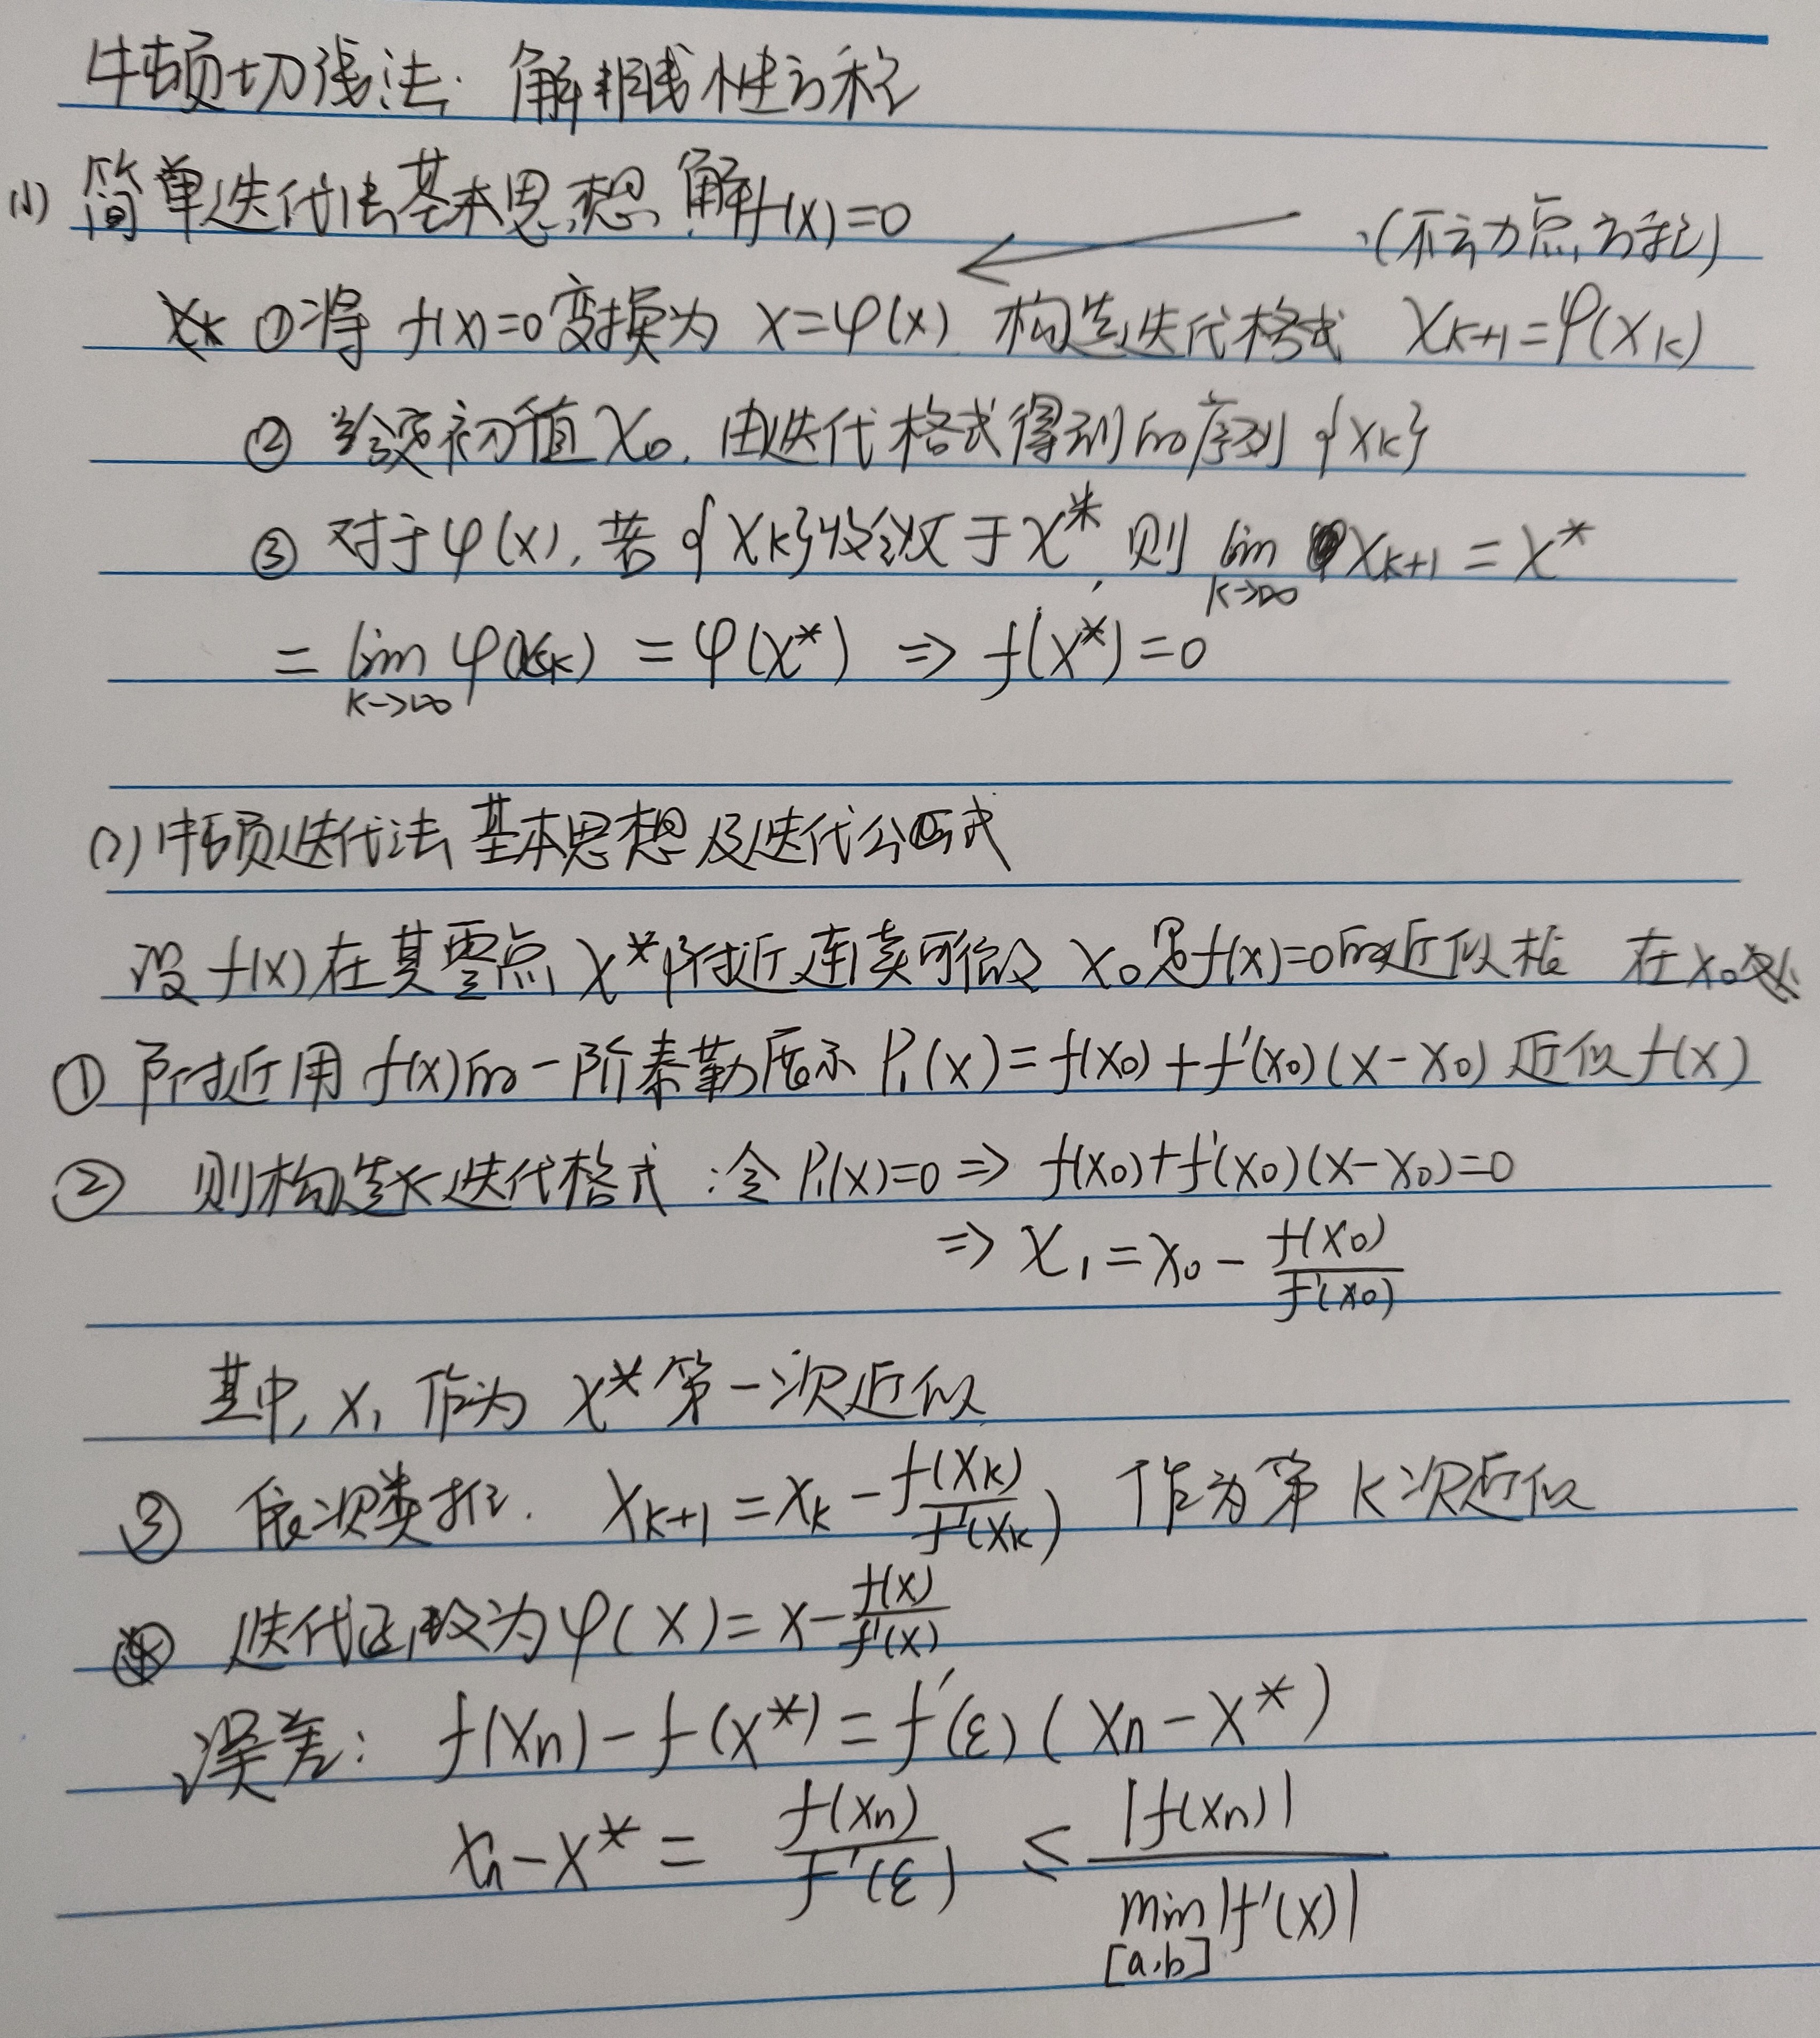 牛顿切线法: 解非线性方程
(1) 简单迭代法基本思想. 解f(x)=0
(不动点方程)
①将 f(x)=0变换为 x=φ(x) 构造迭代格式 Xk+1=φ(Xk)
② 给定初值X0. 由迭代格式得到的序列{Xk}
③ 对于φ(x), 若{Xk}收敛于X*, 则 lim k→∞ Xk+1 = X*
= lim k→∞ φ(Xk) = φ(X*) ⇒ f(X*)=0
(2) 牛顿迭代法基本思想及迭代公式
设 f(x)在其零点 X*附近连续可微 X0是f(x)=0的近似根 在X0
① 附近用 f(x)的一阶泰勒展示 P1(x)=f(X0)+f'(X0)(X-X0) 近似f(x)
② 则构造 迭代格式: 令P1(x)=0 ⇒ f(X0)+f'(X0)(X-X0)=0
⇒ X1=X0 - f(X0)/f'(X0)
其中, X1 作为 X*第一次近似
③ 依次类推. Xk+1=Xk - f(Xk)/f'(Xk) 作为第K次近似
④ 迭代函数为φ(X)=X - f(X)/f'(X)
误差: f(Xn)-f(X*)=f'(ε)(Xn-X*)
Xn-X* = f(Xn)/f'(ε) ≤ |f(Xn)|/min[a,b]|f'(X)|